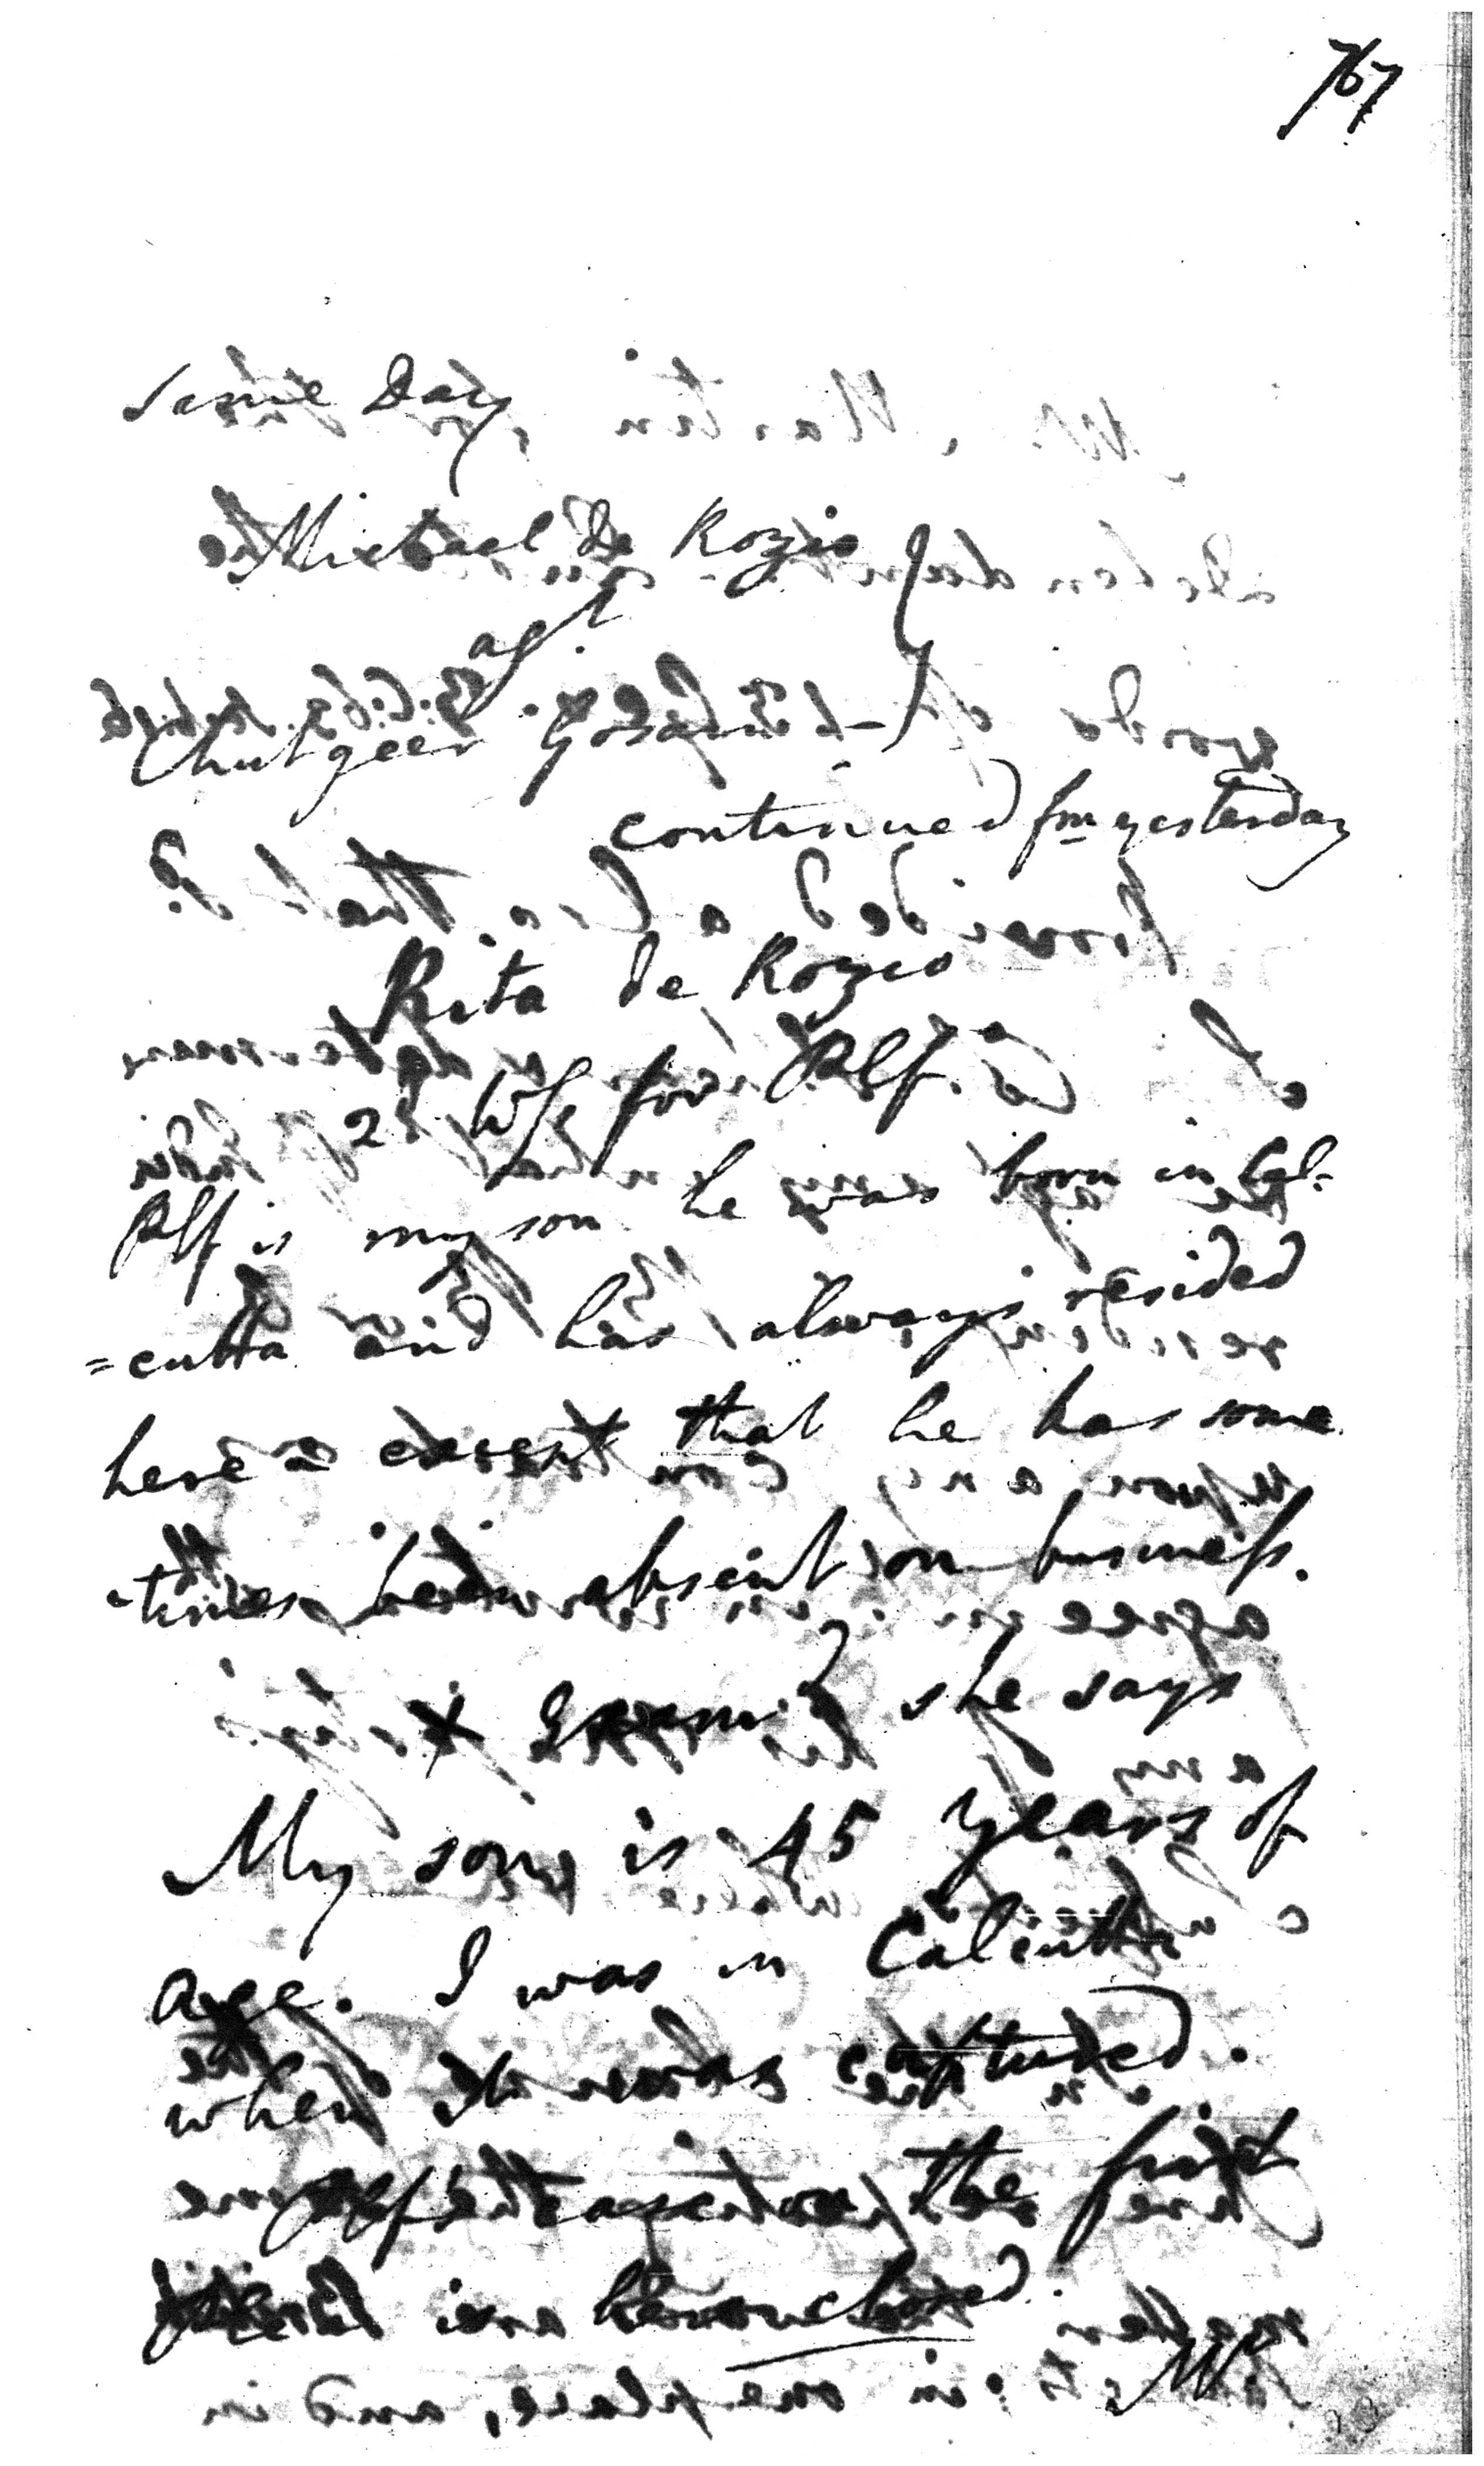 767
Same Day
Michael de Rozio
agt.
Chutgeer Gosain
continued fm yesterday
Rita de Rozio
2d Wss for Plf.
Plf is my son he was born in Cal-
=cutta and has always resided
here except that he has some
-times been absent on business.
X Examd she says
My son is 45 years of
age. I was in Calcutta
when it was captured.
the first
is
Mr